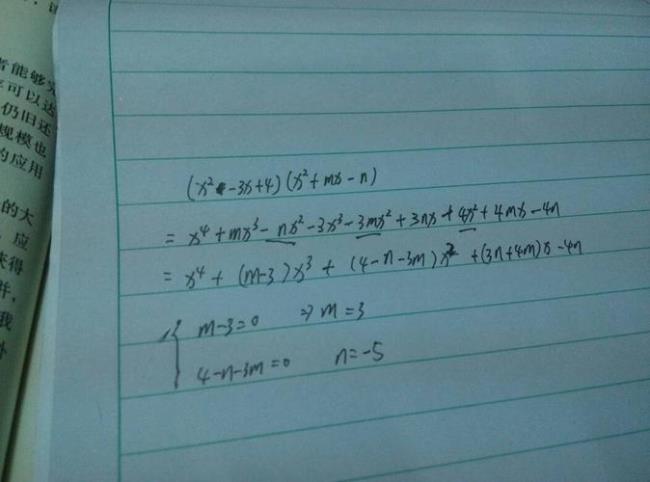 ，
者能够
可以达
仍旧还
规模也
的应用
的大
，应
来得
件，
我
(x²-3x+4)(x²+mx-n)
= x⁴+mx³-nx²-3x³-3mx²+3nx+4x²+4mx-4n
= x⁴+(m-3)x³+(4-n-3m)x²+(3n+4m)x-4n
{ m-3=0 ⇒ m=3
4-n-3m=0 n=-5